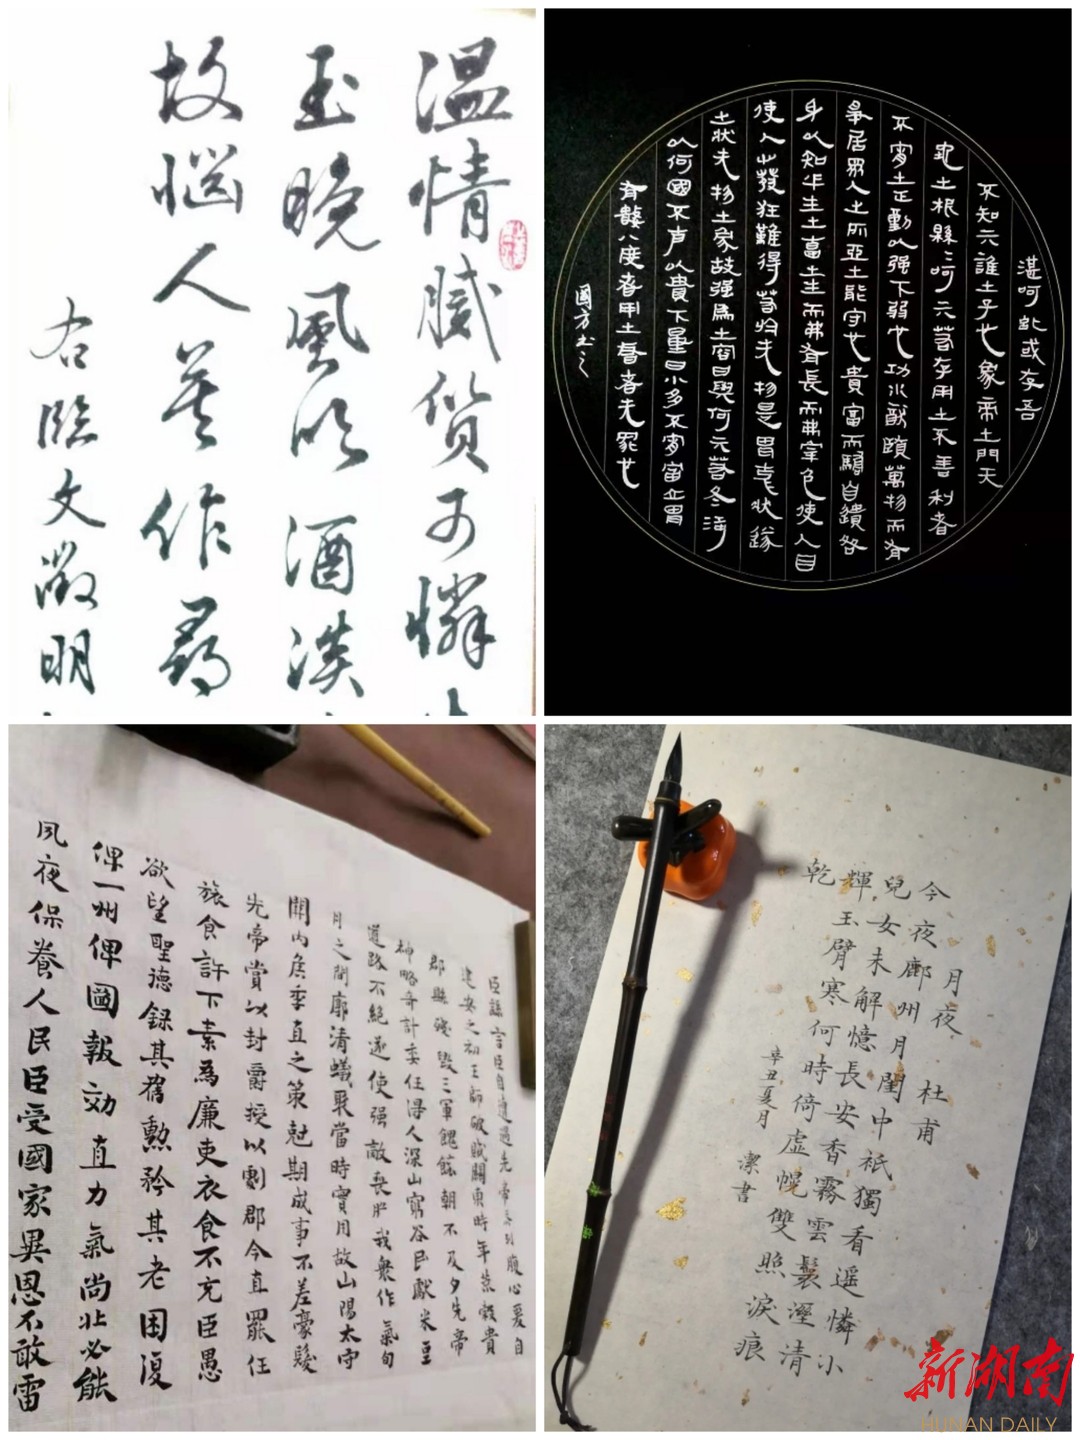 温情膩質可憐
玉晚風吹酒淡
故惱人莫作尋
右臨文徵明
湛呵似或存吾
不知亓誰之子也象帝之門天
地之根縣縣呵亓若存用之不善利者
不宵之正動以强下弱也功水猷萬物而有
爭居眾人之所亞之能守也貴富而驕自遺咎
身以知乎生之畜之生而弗有長而弗宰也使人目
使人發狂難得
之狀无物之象故强為之容曰與何亓若冬涉
以何國不
國方书之
臣繇言臣自遭遇先帝忝列腹心爰自
建安之初王師破賊關東時年荒穀貴
郡縣殘毀三軍餽饟朝不及夕先帝
神略奇計委任得人深山窮谷民獻米豆
道路不絕遂使强敵喪膽我衆作氣旬
月之間廓清蟻聚當時實用故山陽太守
關內侯季直之策尅期成事不差豪髮
先帝賞以封爵授以劇郡今直罷任
旅食許下素為廉吏衣食不充臣愚
欲望聖德録其舊勲矜其老困復
俾一州俾圖報効直力氣尚壯必能
夙夜保養人民臣受國家異恩不敢雷
月夜 杜甫
今夜鄜州月閨中衹獨看遥憐小
兒女未解憶長安香霧雲鬟溼清
輝玉臂寒何時倚虛幌雙照淚痕
乾
辛丑夏月 潔書
新湖南
HUNAN DAILY